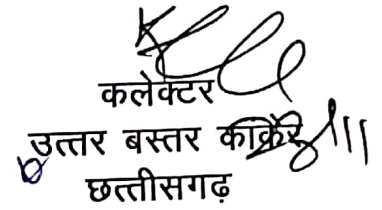 कलेक्टर
उत्तर बस्तर कांकेर
छत्तीसगढ़